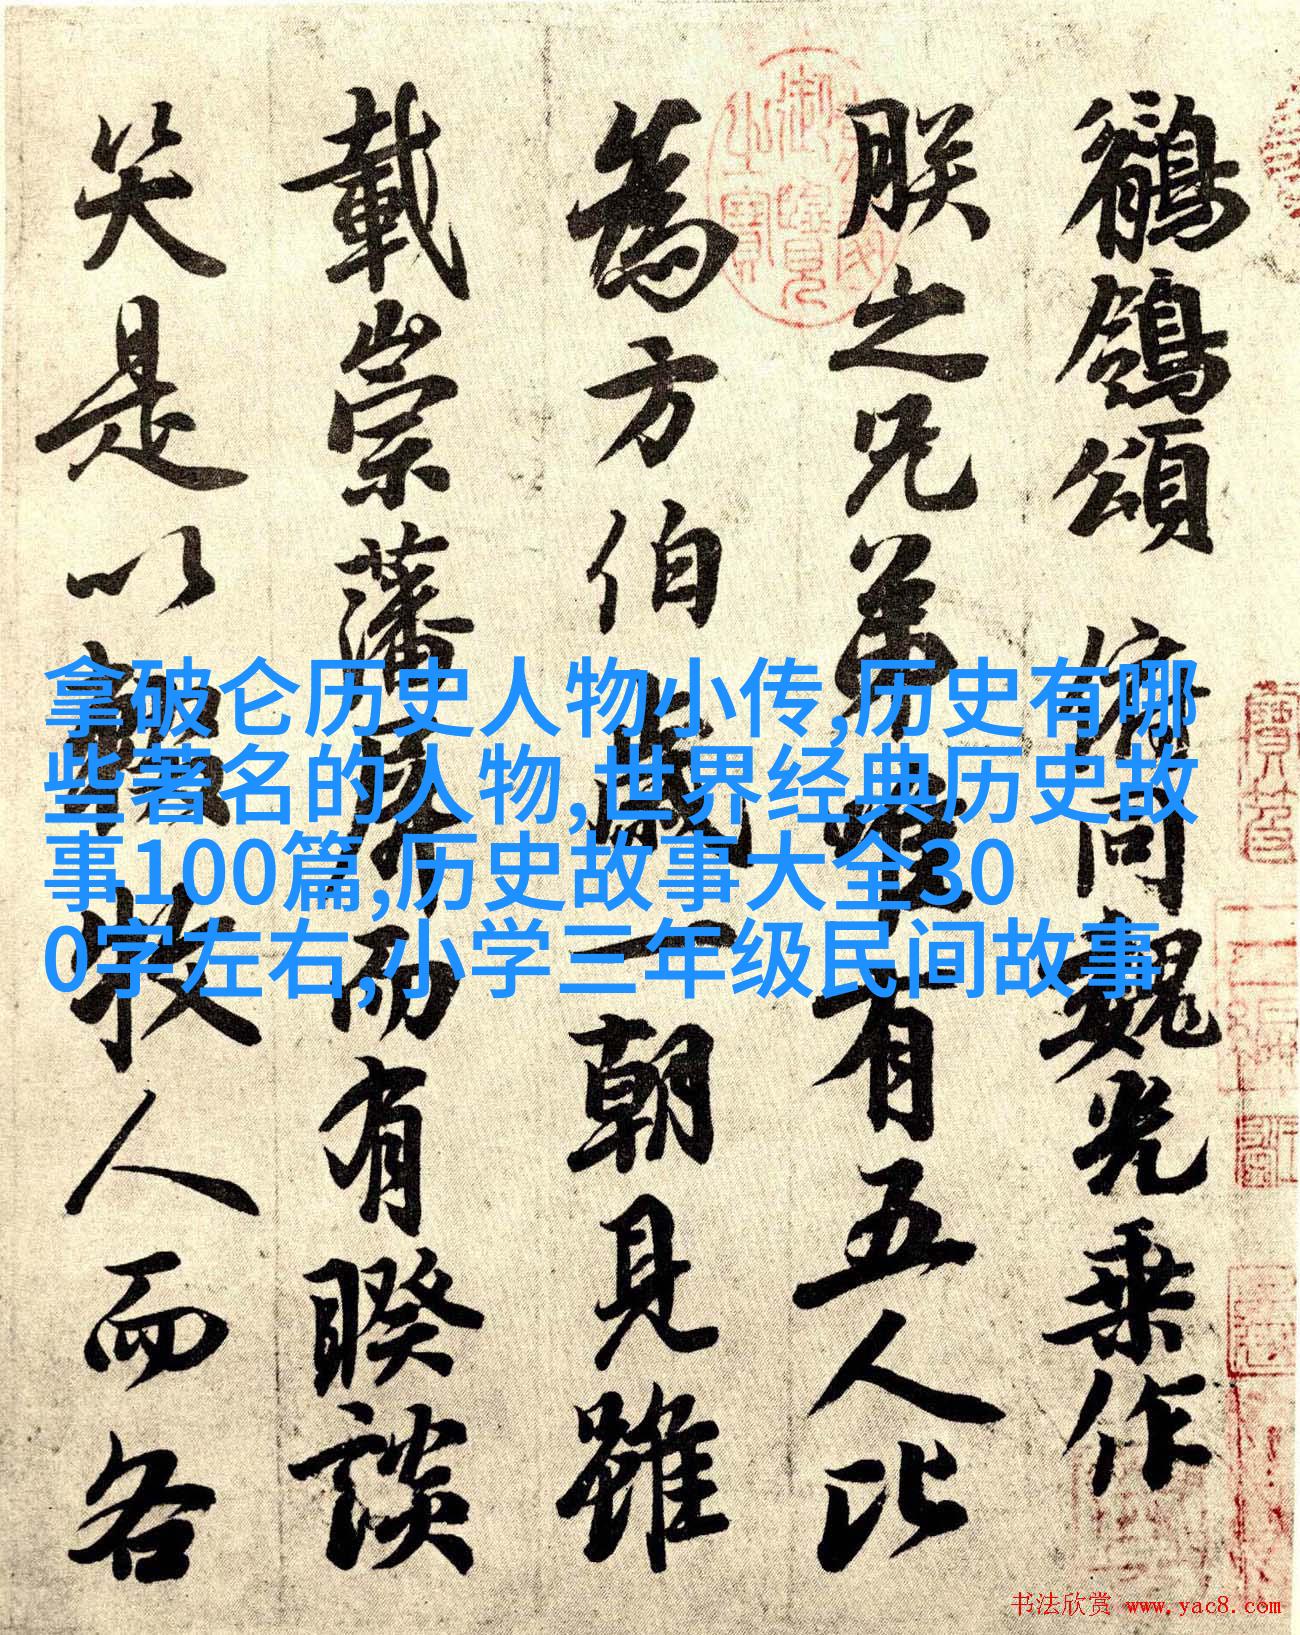 鶺鴒頌 俯同魏光乘作
朕之兄弟唯有五人比
為方伯歲一朝見雖
載崇藩屏而有睽談
笑是以輟牧人而各
拿破仑历史人物小传,历史有哪
些著名的人物,世界经典历史故
事100篇,历史故事大全30
0字左右,小学三年级民间故事
书法欣赏 www.yac8.com